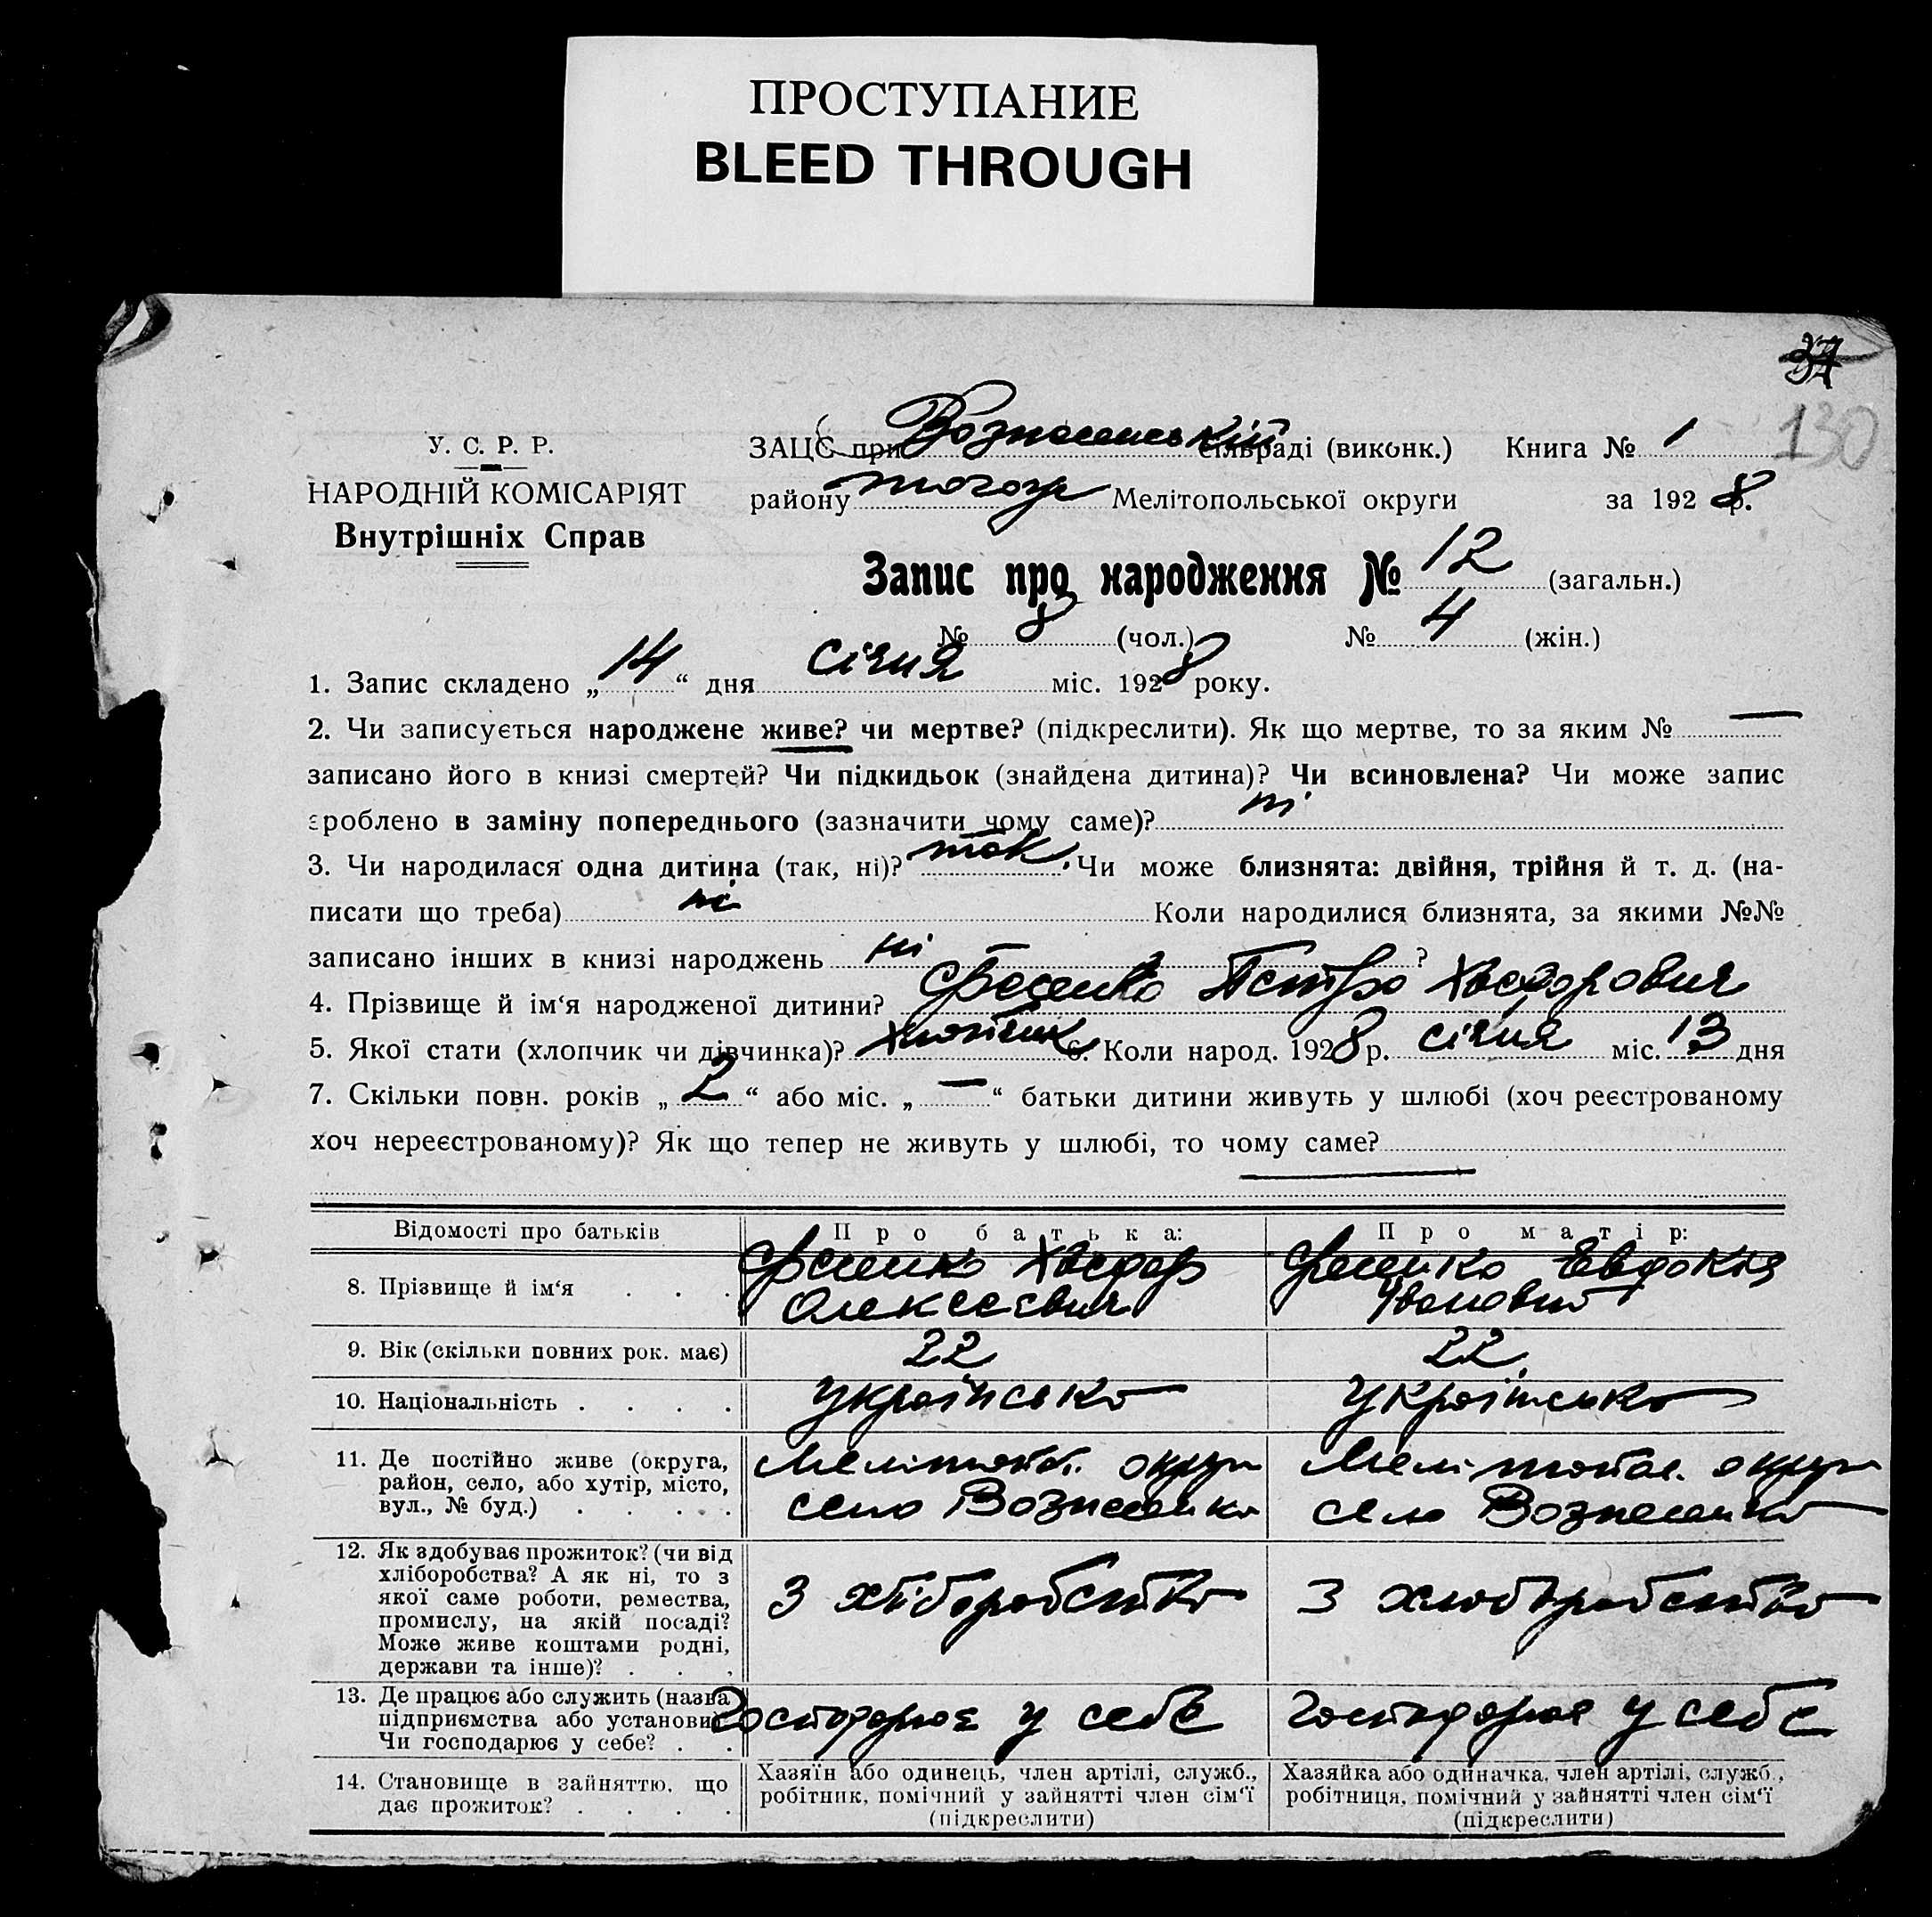 ПРОСТУПАНИЕ
BLEED THROUGH
37
130
У. С. Р. Р.
НАРОДНІЙ КОМІСАРІЯТ
Внутрішніх Справ
ЗАЦС при Вознесенській сільраді (виконк.) Книга № 1
району того ж Мелітопольської округи за 1928 р.
Запис про народження № 12 (загальн.)
№ 8 (чол.) № 4 (жін.)
1. Запис складено „14“ дня січня міс. 1928 року.
2. Чи записується народжене живе? чи мертве? (підкреслити). Як що мертве, то за яким № —
записано його в книзі смертей? Чи підкидьок (знайдена дитина)? Чи всиновлена? Чи може запис
зроблено в заміну попереднього (зазначити чому саме)? ні
3. Чи народилася одна дитина (так, ні)? так. Чи може близнята: двійня, трійня й т. д. (на-
писати що треба) ні Коли народилися близнята, за якими №№
записано інших в книзі народжень ні ?
4. Прізвище й ім‘я народженої дитини? Фесенко Петро Хведорович
5. Якої стати (хлопчик чи дівчинка)? хлопчик 6. Коли народ. 1928 р. січня міс. 13 дня
7. Скільки повн. років „2“ або міс. „—“ батьки дитини живуть у шлюбі (хоч реєстрованому
хоч нереєстрованому)? Як що тепер не живуть у шлюбі, то чому саме? —
Відомості про батьків
Про батька:
Про матір:
8. Прізвище й ім‘я . . .
Фесенко Хведор
Олексеевич
Фесенко Евдокия
Ивановна
9. Вік (скільки повних рок. має)
22
22
10. Національність . . . .
українська
українська
11. Де постійно живе (округа,
район, село, або хутір, місто,
вул., № буд.) . . . . .
Мелітопол. округи
село Вознесенка
Мелітопол. округи
село Вознесенка
12. Як здобуває прожиток? (чи від
хліборобства? А як ні, то з
якої саме роботи, ремества,
промислу, на якій посаді?
Може живе коштами родні,
держави та інше)? . . .
З хліборобства
З хліборобства
13. Де працює або служить (назва
підприємства або установи)
Чи господарює у себе? . .
Господарює у себе
Господарює у себе
14. Становище в зайняттю, що
дає прожиток? . . . .
Хазяїн або одинець, член артілі, служб.,
робітник, помічний у зайнятті член сім‘ї
(підкреслити)
Хазяйка або одиначка, член артілі, служб.,
робітниця, помічний у зайнятті член сім‘ї
(підкреслити)